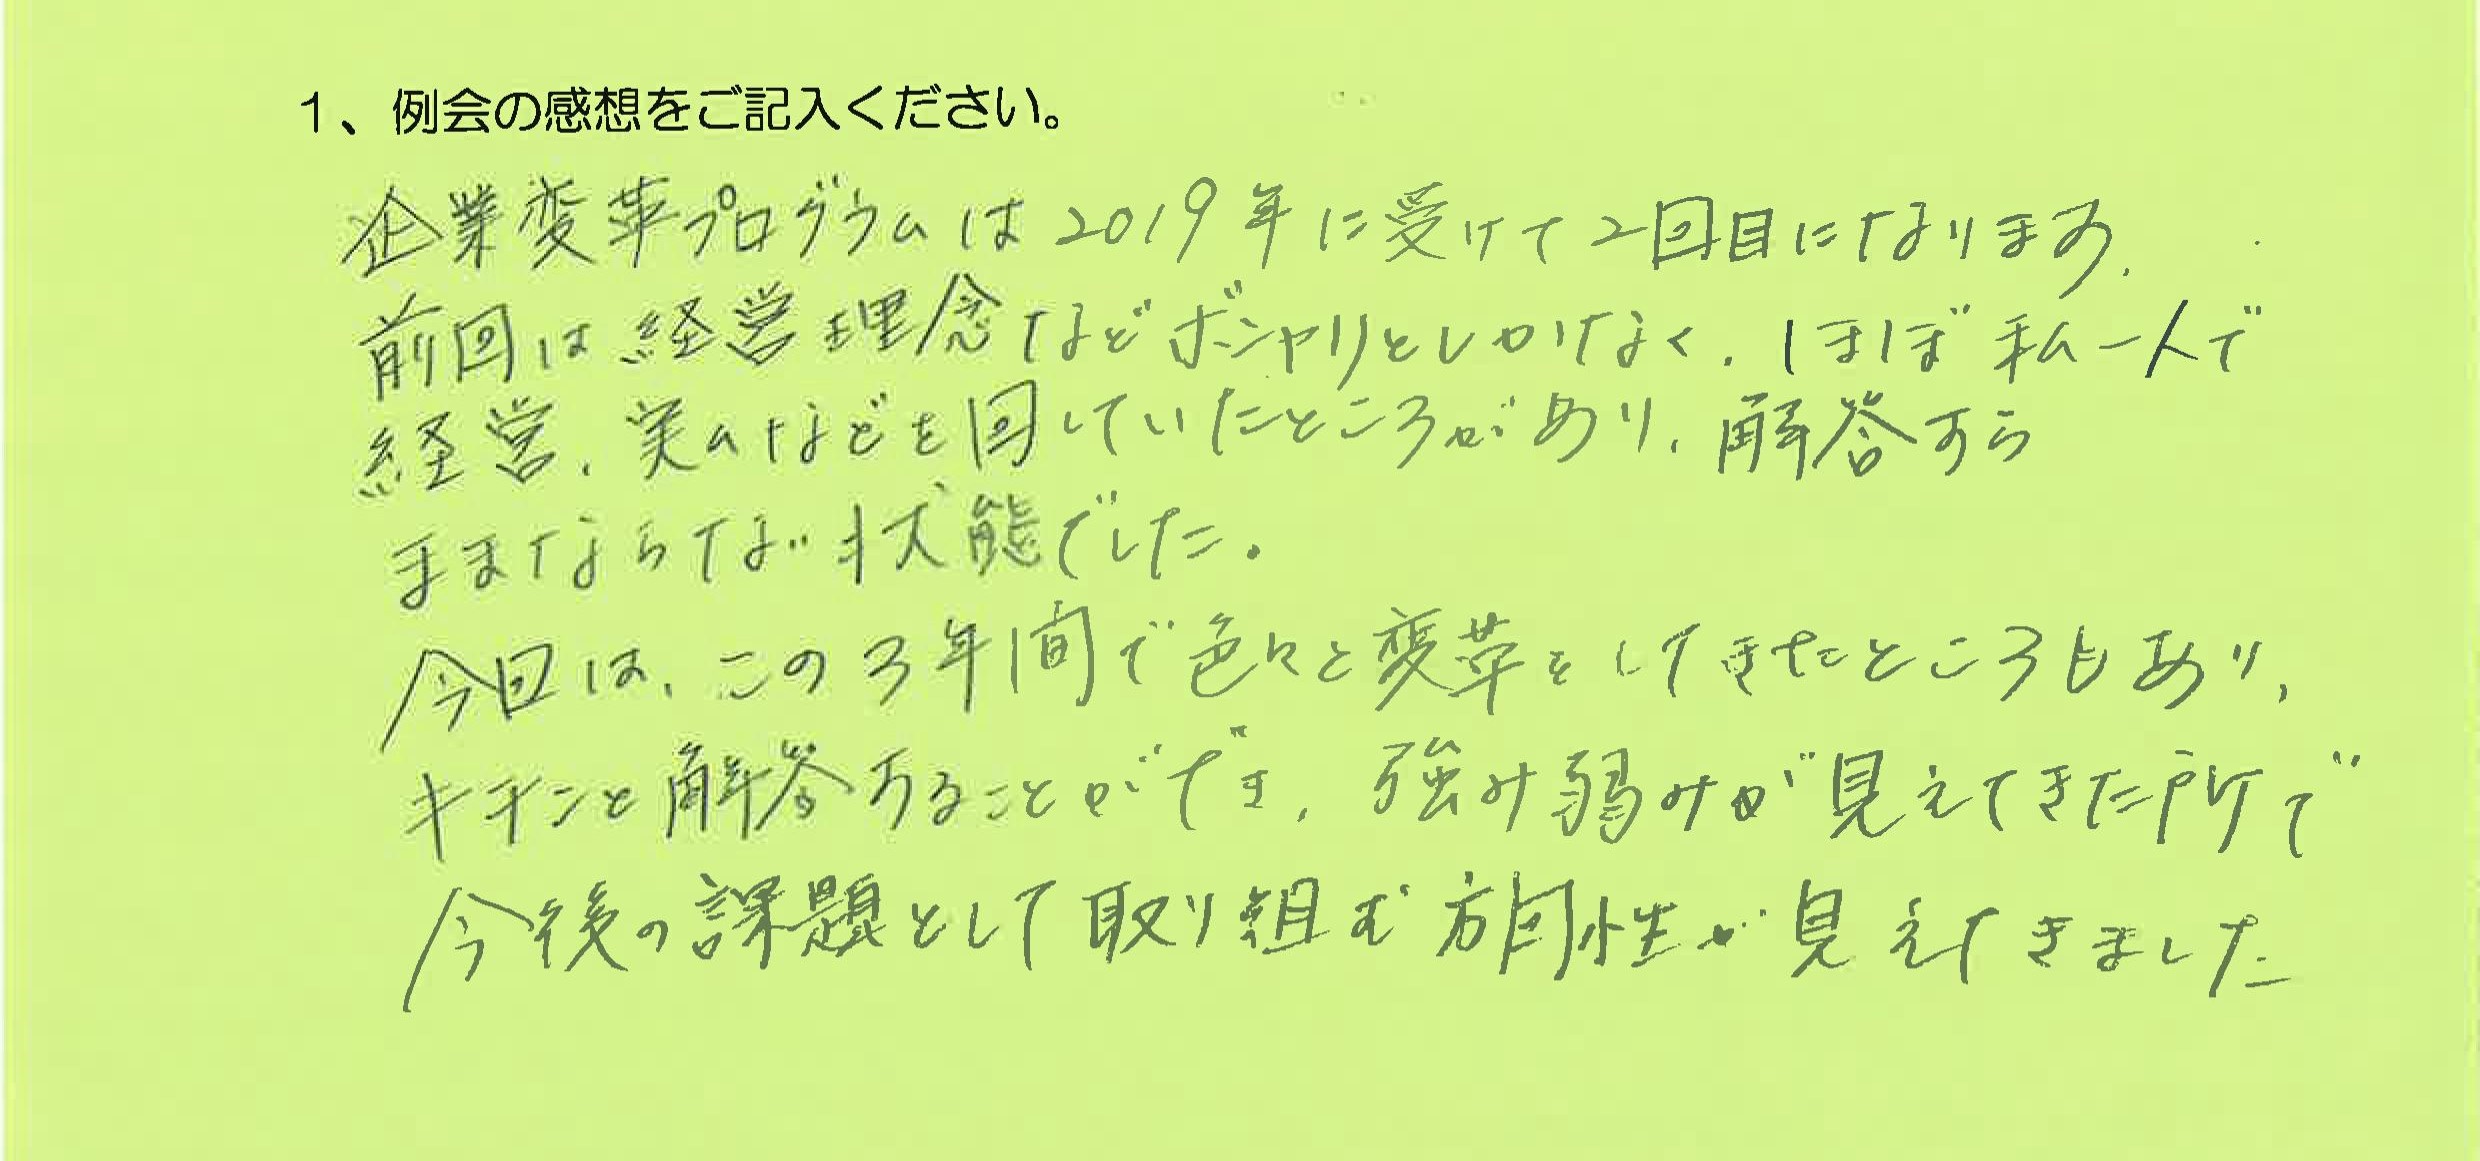 1、例会の感想をご記入ください。
企業変革プログラムは2019年に受けて2回目になります、
前回は経営理念などボンヤリとしかなく、ほぼ私一人で
経営、実ムなどを回していたところがあり、解答すら
ままならない状態でした。
今回は、この3年間で色々と変革をしてきたところもあり、
キチンと解答することができ、強み弱みが見えてきた所で
今後の課題として取り組む方向性が見えてきました